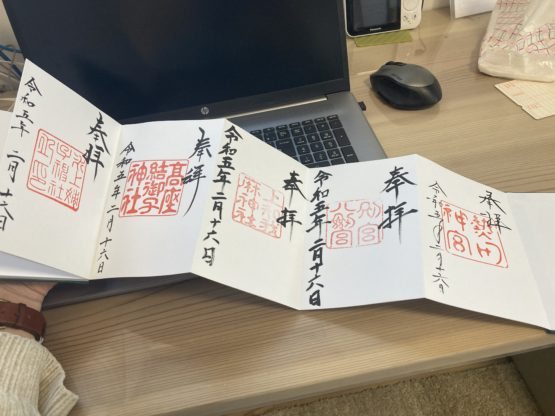 奉拝
熱田
神宮
令和五年二月十六日
奉拝
別宮
八剣宮
令和五年二月十六日
奉拝
上知我
麻神社
令和五年二月十六日
奉拝
高座
結御子
神社
令和五年二月十六日
奉拝
令和五年二月十六日
hp